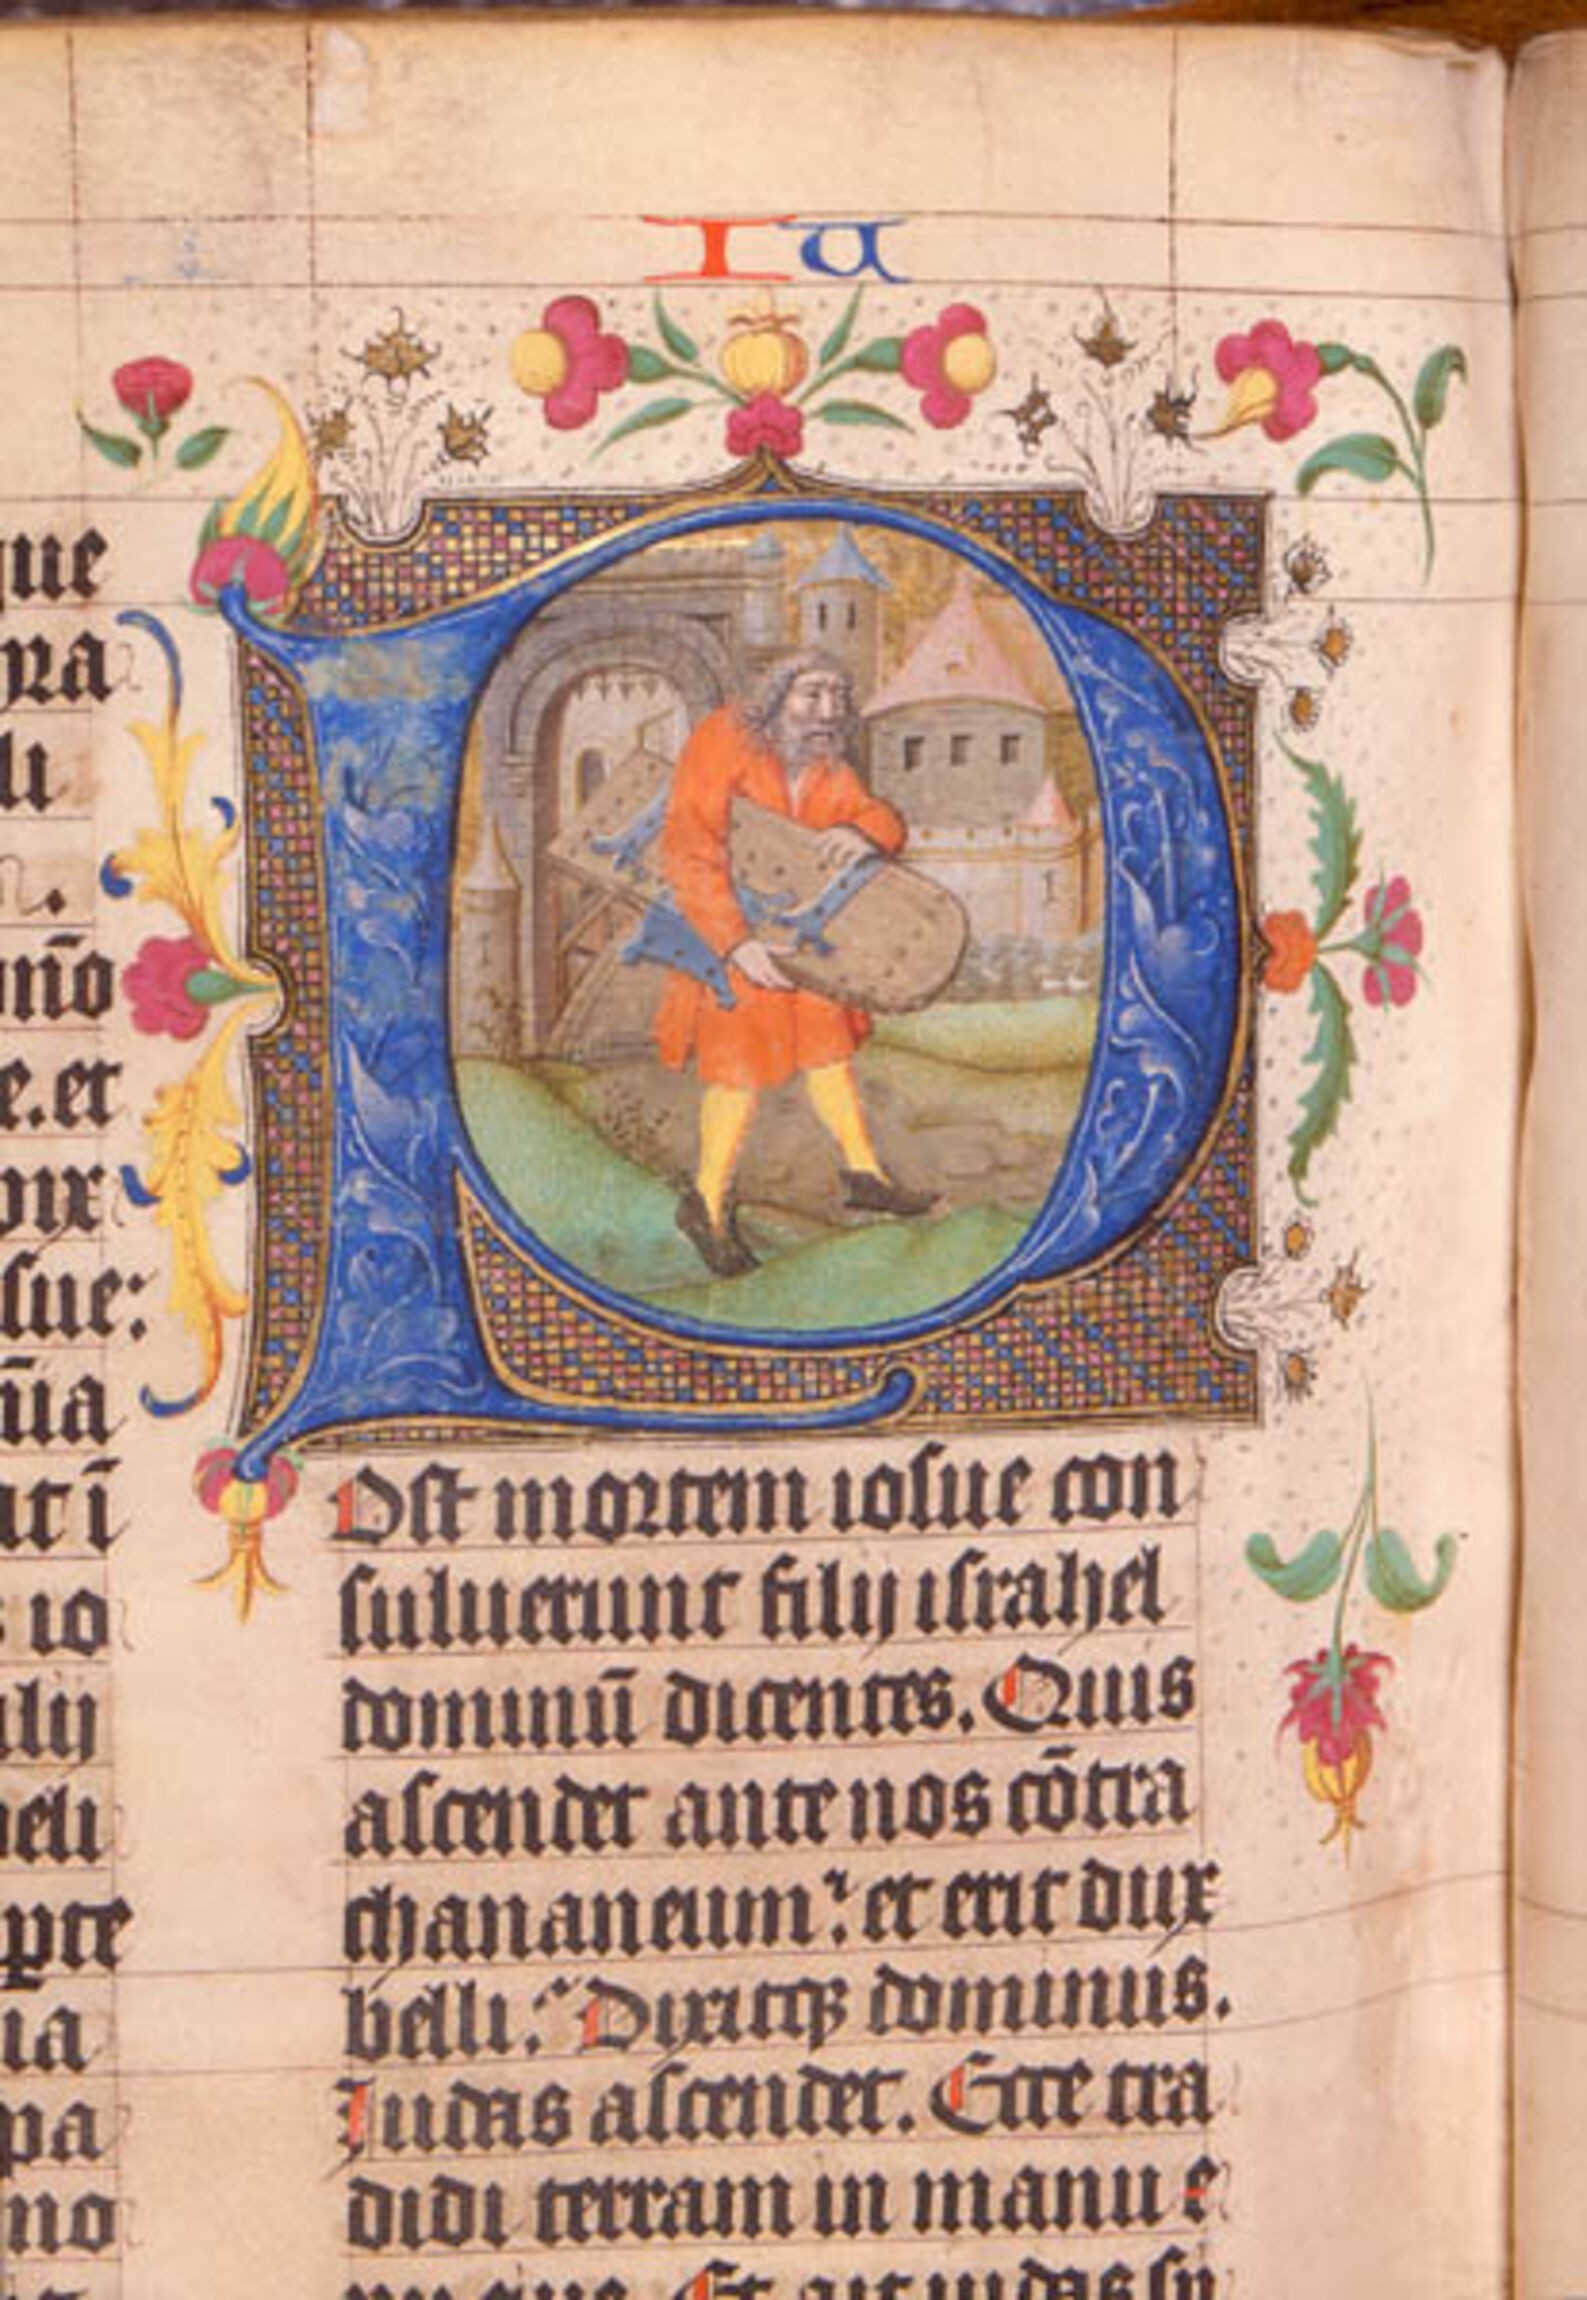 Iu
que
yra
li
n.
m̄o
e.et
vix
sue:
ūa
at ī
s io
ilij
heli
pte
ia
pa
no
Post mortem iosue con
suluerunt filij israhel
dominū dicentes. Quis
ascendet ante nos cōtra
chananeum? et erit dux
belli? Dixitqꝫ dominus.
Iudas ascendet. Ecce tra
didi terram in manu e
Et ait iudas sy